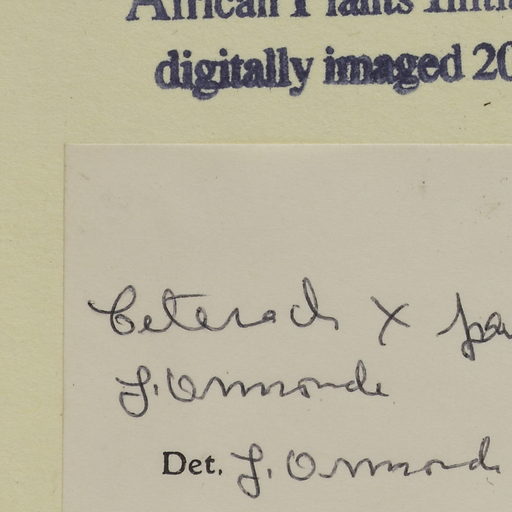 African Plants
digitally imaged 20
Ceterach X
J. Ormonde
Det. J. Ormonde